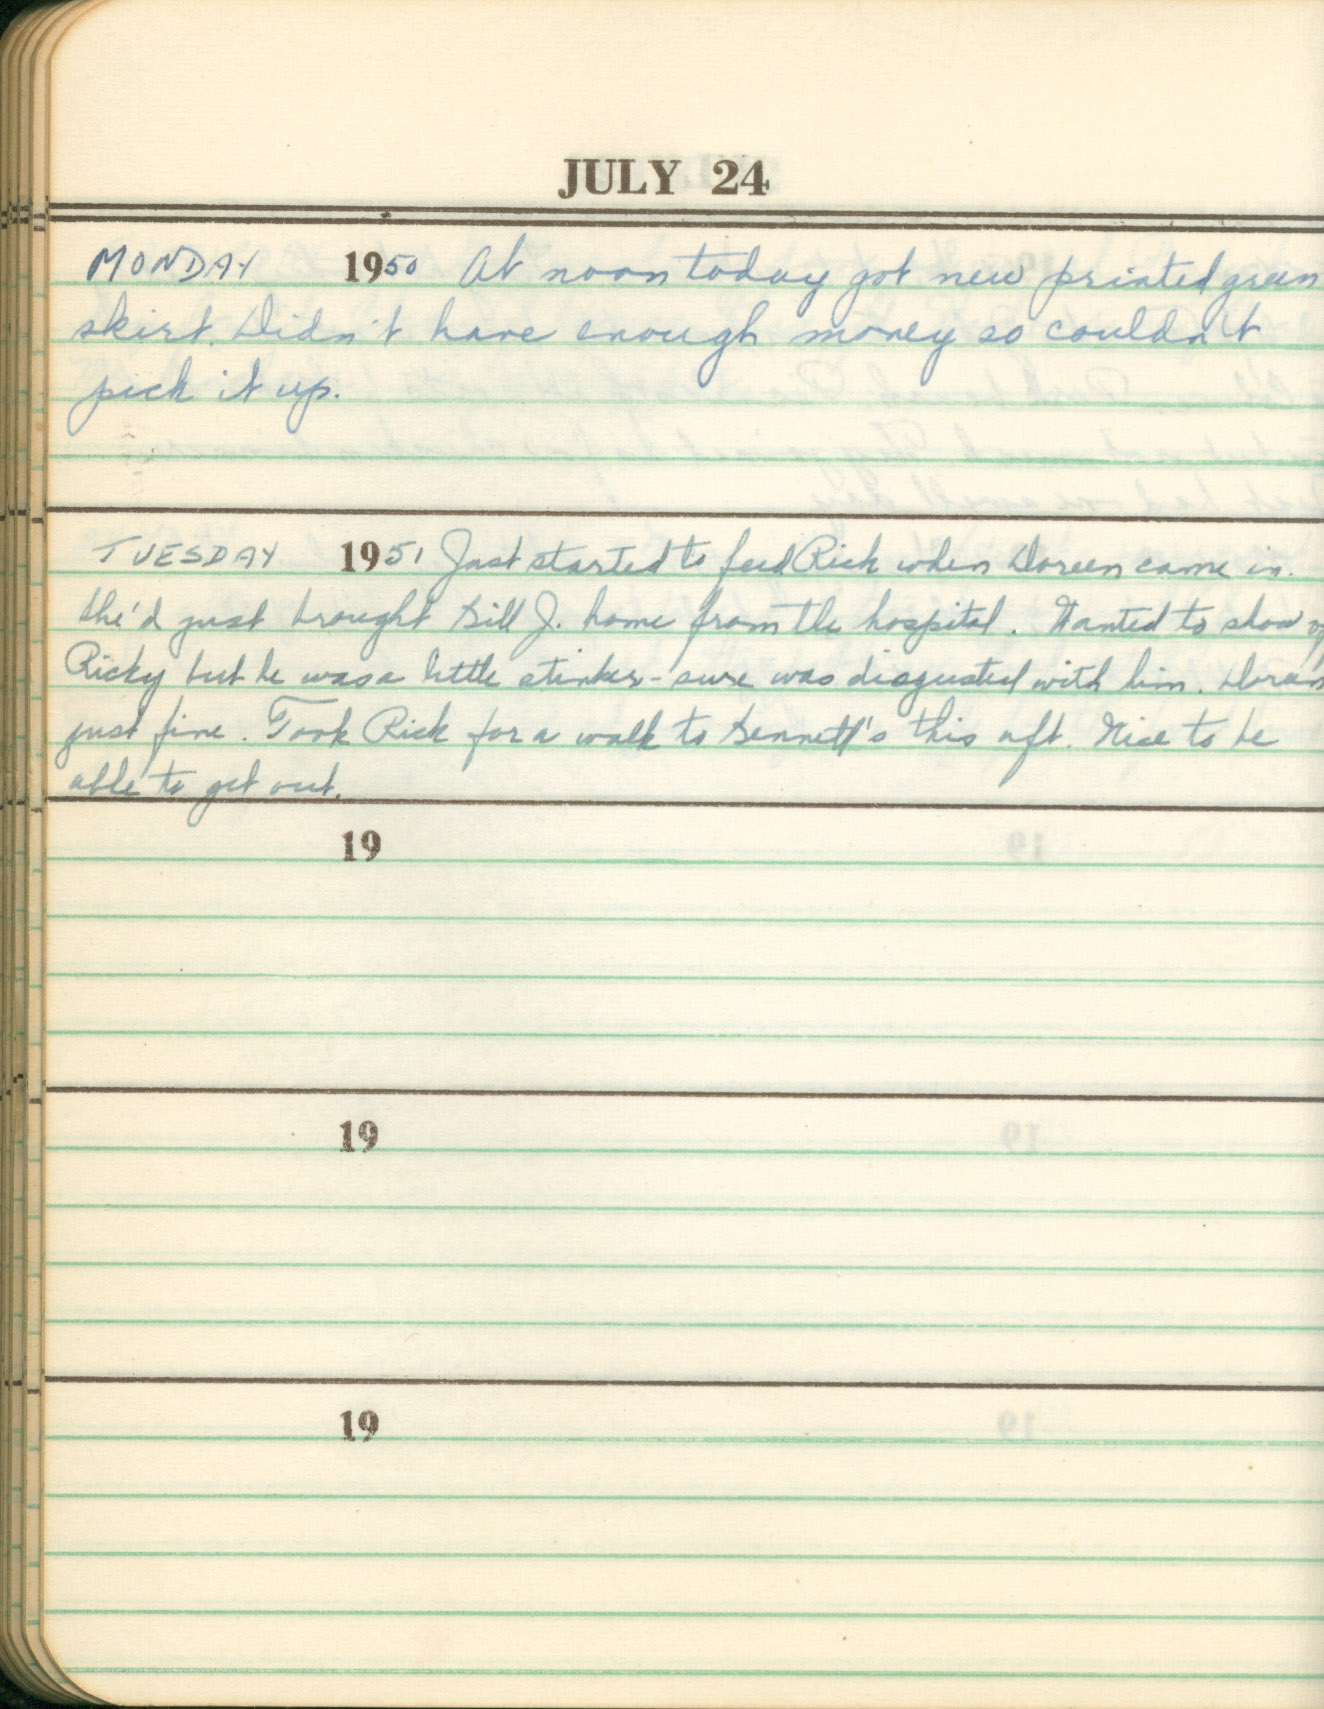 JULY 24
MONDAY 1950 At noon today got new printed green
skirt. Didn't have enough money so couldn't
pick it up.
TUESDAY 1951 Just started to feed Rick when Doreen came in.
She'd just brought Bill J. home from the hospital. Wanted to show off
Ricky but he was a little stinker - sure was disgusted with him. Doreen
just fine. Took Rick for a walk to Bennett's this aft. Nice to be
able to get out.
19
19
19